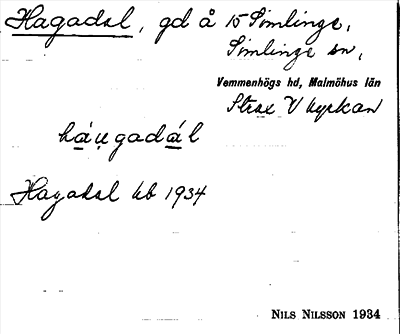 Hagadal, gd å 15 Simlinge,
Simlinge sn,
Vemmenhögs hd, Malmöhus län
Strax V kyrkan
háu̯gadál
Hagadal kb 1934
NILS NILSSON 1934